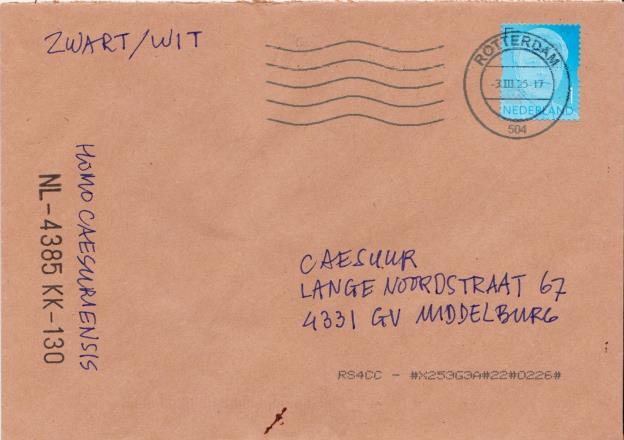 ZWART/WIT
ROTTERDAM
-3.III.25-17
504
NEDERLAND
HOMO CAESURIENSIS
NL-4385 KK-130
CAESUUR
LANGE NOORDSTRAAT 67
4331 GV MIDDELBURG
RS4CC - #X253G3A#22#0226#